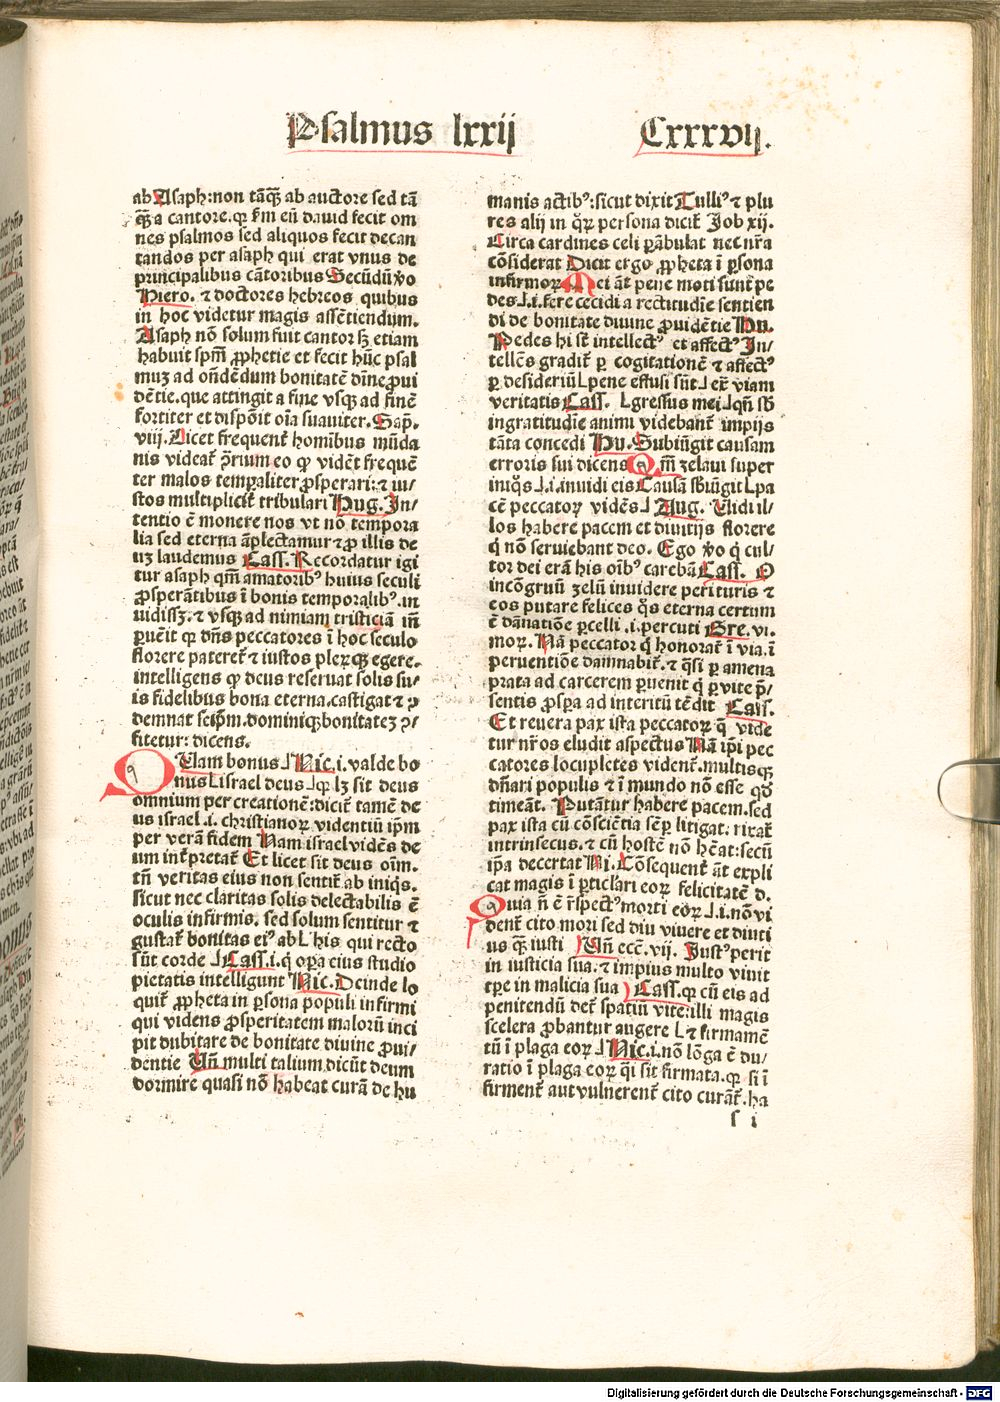 Psalmus lxxij
Cxxxvij.
ab Asaph: non tāq̄ ab auctore sed tā
q̄ a cantore. qꝛ ẜm eū dauid fecit om
nes psalmos sed aliquos fecit decan
tandos per asaph qui erat vnus de
principalibus cātoribus Secūdū ꝟo
Hiero. ⁊ doctores hebreos quibus
in hoc videtur magis assētiendum.
Asaph nō solum fuit cantor sꝫ etiam
habuit spm̄ ꝓphetie et fecit hūc psal
muꝫ ad on̄dēdum bonitatē diīe ꝓui
dētie. que attingit a fine vsqꝫ ad finē
fortiter et dispōit oīa suauiter. Sap.
viij. Licet frequent᷑ homībus mūda
nis videat᷑ ꝓrium eo ꝙ vidēt frequē
ter malos temꝑaliter ꝓsperari: ⁊ iu/
stos multiplicit᷑ tribulari Hug. In/
tentio ē monere nos vt nō tempora
lia sed eterna āplectamur ⁊ ꝓ illis de
uꝫ laudemus Cass. Recordatur igi
tur asaph qm̄ amatoribꝰ huius seculi
ꝓsperātibus ī bonis temporalibꝰ. in
uidissꝫ. ⁊ vsqꝫ ad nimiam tristiciā iī
ꝑuēit ꝙ dn̄s peccatores ī hoc seculo
florere pateret᷑ ⁊ iustos pleꝝqꝫ egere.
intelligens ꝙ deus reseruat solis su/
is fidelibus bona eterna. castigat ⁊ ꝯ
demnat seip̄m. dominiqꝫ bonitateꝫ ꝯ/
fitetur: dicens.
QUam bonus ⅃ Nic. i. valde bo
nus L israel deus ⅃ qꝛ lꝫ sit deus
omnium per creationē: dicit᷑ tamē de
us israel .i. christianoꝝ videntiū ip̄m
per verā fidem Nam israel vidēs de
um int᷑pretat᷑ Et licet sit deus oīm.
tn̄ veritas eius non sentit᷑ ab iniq̄s.
sicut nec claritas solis delectabilis ē
oculis infirmis. sed solum sentitur ⁊
gustat᷑ bonitas eiꝰ ab L his qui recto
sūt corde ⅃ Cass. i. q̄ oꝑa eius studio
pietatis intelligunt Nic. Deinde lo
quit᷑ ꝓpheta in ꝑsona populi infirmi
qui videns ꝓsperitatem maloꝝ inci
pit dubitare de bonitate diuine ꝓui/
dentie Un̄ multi talium dicūt deum
dormire quasi nō habeat curā de hu
manis actibꝰ: sicut dixit Tulliꝰ ⁊ plu
res alij in q̄ꝝ persona dicit᷑ Job xij.
Circa cardines celi ꝑābulat nec nr̄a
cōsiderat Dicit ergo ꝓpheta ī ꝑsona
infirmoꝝ Mei āt pene moti sunt pe
des ⅃ .i. fere cecidi a rectitudīe sentien
di de bonitate diuine ꝓuidētie Hu.
Pedes hi sūt intellectꝰ et affectꝰ In/
tellēs gradit᷑ ꝑ cogitationē ⁊ affectꝰ
ꝑ desideriū L pene effusi sūt ⅃ ext᷑ viam
veritatis Cass. L gressus mei ⅃ qn̄ sb̄
ingratitudīe animi videbant᷑ impijs
tāta concedi Hu. Subiūgit causam
erroris sui dicens Qm̄ zelaui super
iniq̄s ⅃ .i. inuidi eis Causā sb̄iūgit L pa
cē peccatoꝝ vidēs ⅃ Aug. Uidi il/
los habere pacem et diuitijs florere
q̄ nō seruiebant deo. Ego ꝟo q̄ cul/
tor dei erā his oībꝰ carebā Cass. O
incōgruū zelū inuidere perituris ⁊
eos putare felices q̄s eterna certum
ē dānatiōe ꝑcelli .i. percuti Gre. vi.
moꝝ. Nā peccator q̄ honorat᷑ ī via. ī
peruentiōe damnabit᷑. ⁊ q̄si ꝑ amena
prata ad carcerem ꝑuenit q̄ ꝑ vite p̄/
sentis ꝓsꝑa ad interitū tēdit Cass.
Et reuera pax ista peccatoꝝ q̄ vide
tur nr̄os eludit aspectus Nā ip̄i pec
catores locupletes vident᷑. multisqꝫ
dn̄ari populis ⁊ ī mundo nō esse qđ
timeāt. Putāntur habere pacem. sed
pax ista cū cōsciētia sēꝑ litigat: rixat᷑
intrinsecus. ⁊ cū hostē nō hēat: secū
ip̄a decertat Ni. Cōsequent᷑ āt expli
cat magis ī ꝑticl̄ari eoꝝ felicitatē d.
Quia n̄ ē r̄spectꝰ morti eoꝝ ⅃ .i. nō vi
dent᷑ cito mori sed diu viuere et diuti
us q̄ iusti Un̄ ecc̄. vij. Justꝰ perit
in iusticia sua. ⁊ impius multo viuit
tꝑe in malicia sua Cass. qꝛ cū eis ad
penitendū det᷑ spatiū vite: illi magis
scelera ꝓbantur augere L ⁊ firmamē
tū ī plaga eoꝝ ⅃ Nic. i. nō lōga ē du/
ratio ī plaga eoꝝ q̄i sit firmata. qꝛ si ī
firment᷑ aut vulnerent᷑ cito curāt᷑. ha
s i
Digitalisierung gefördert durch die Deutsche Forschungsgemeinschaft - DFG